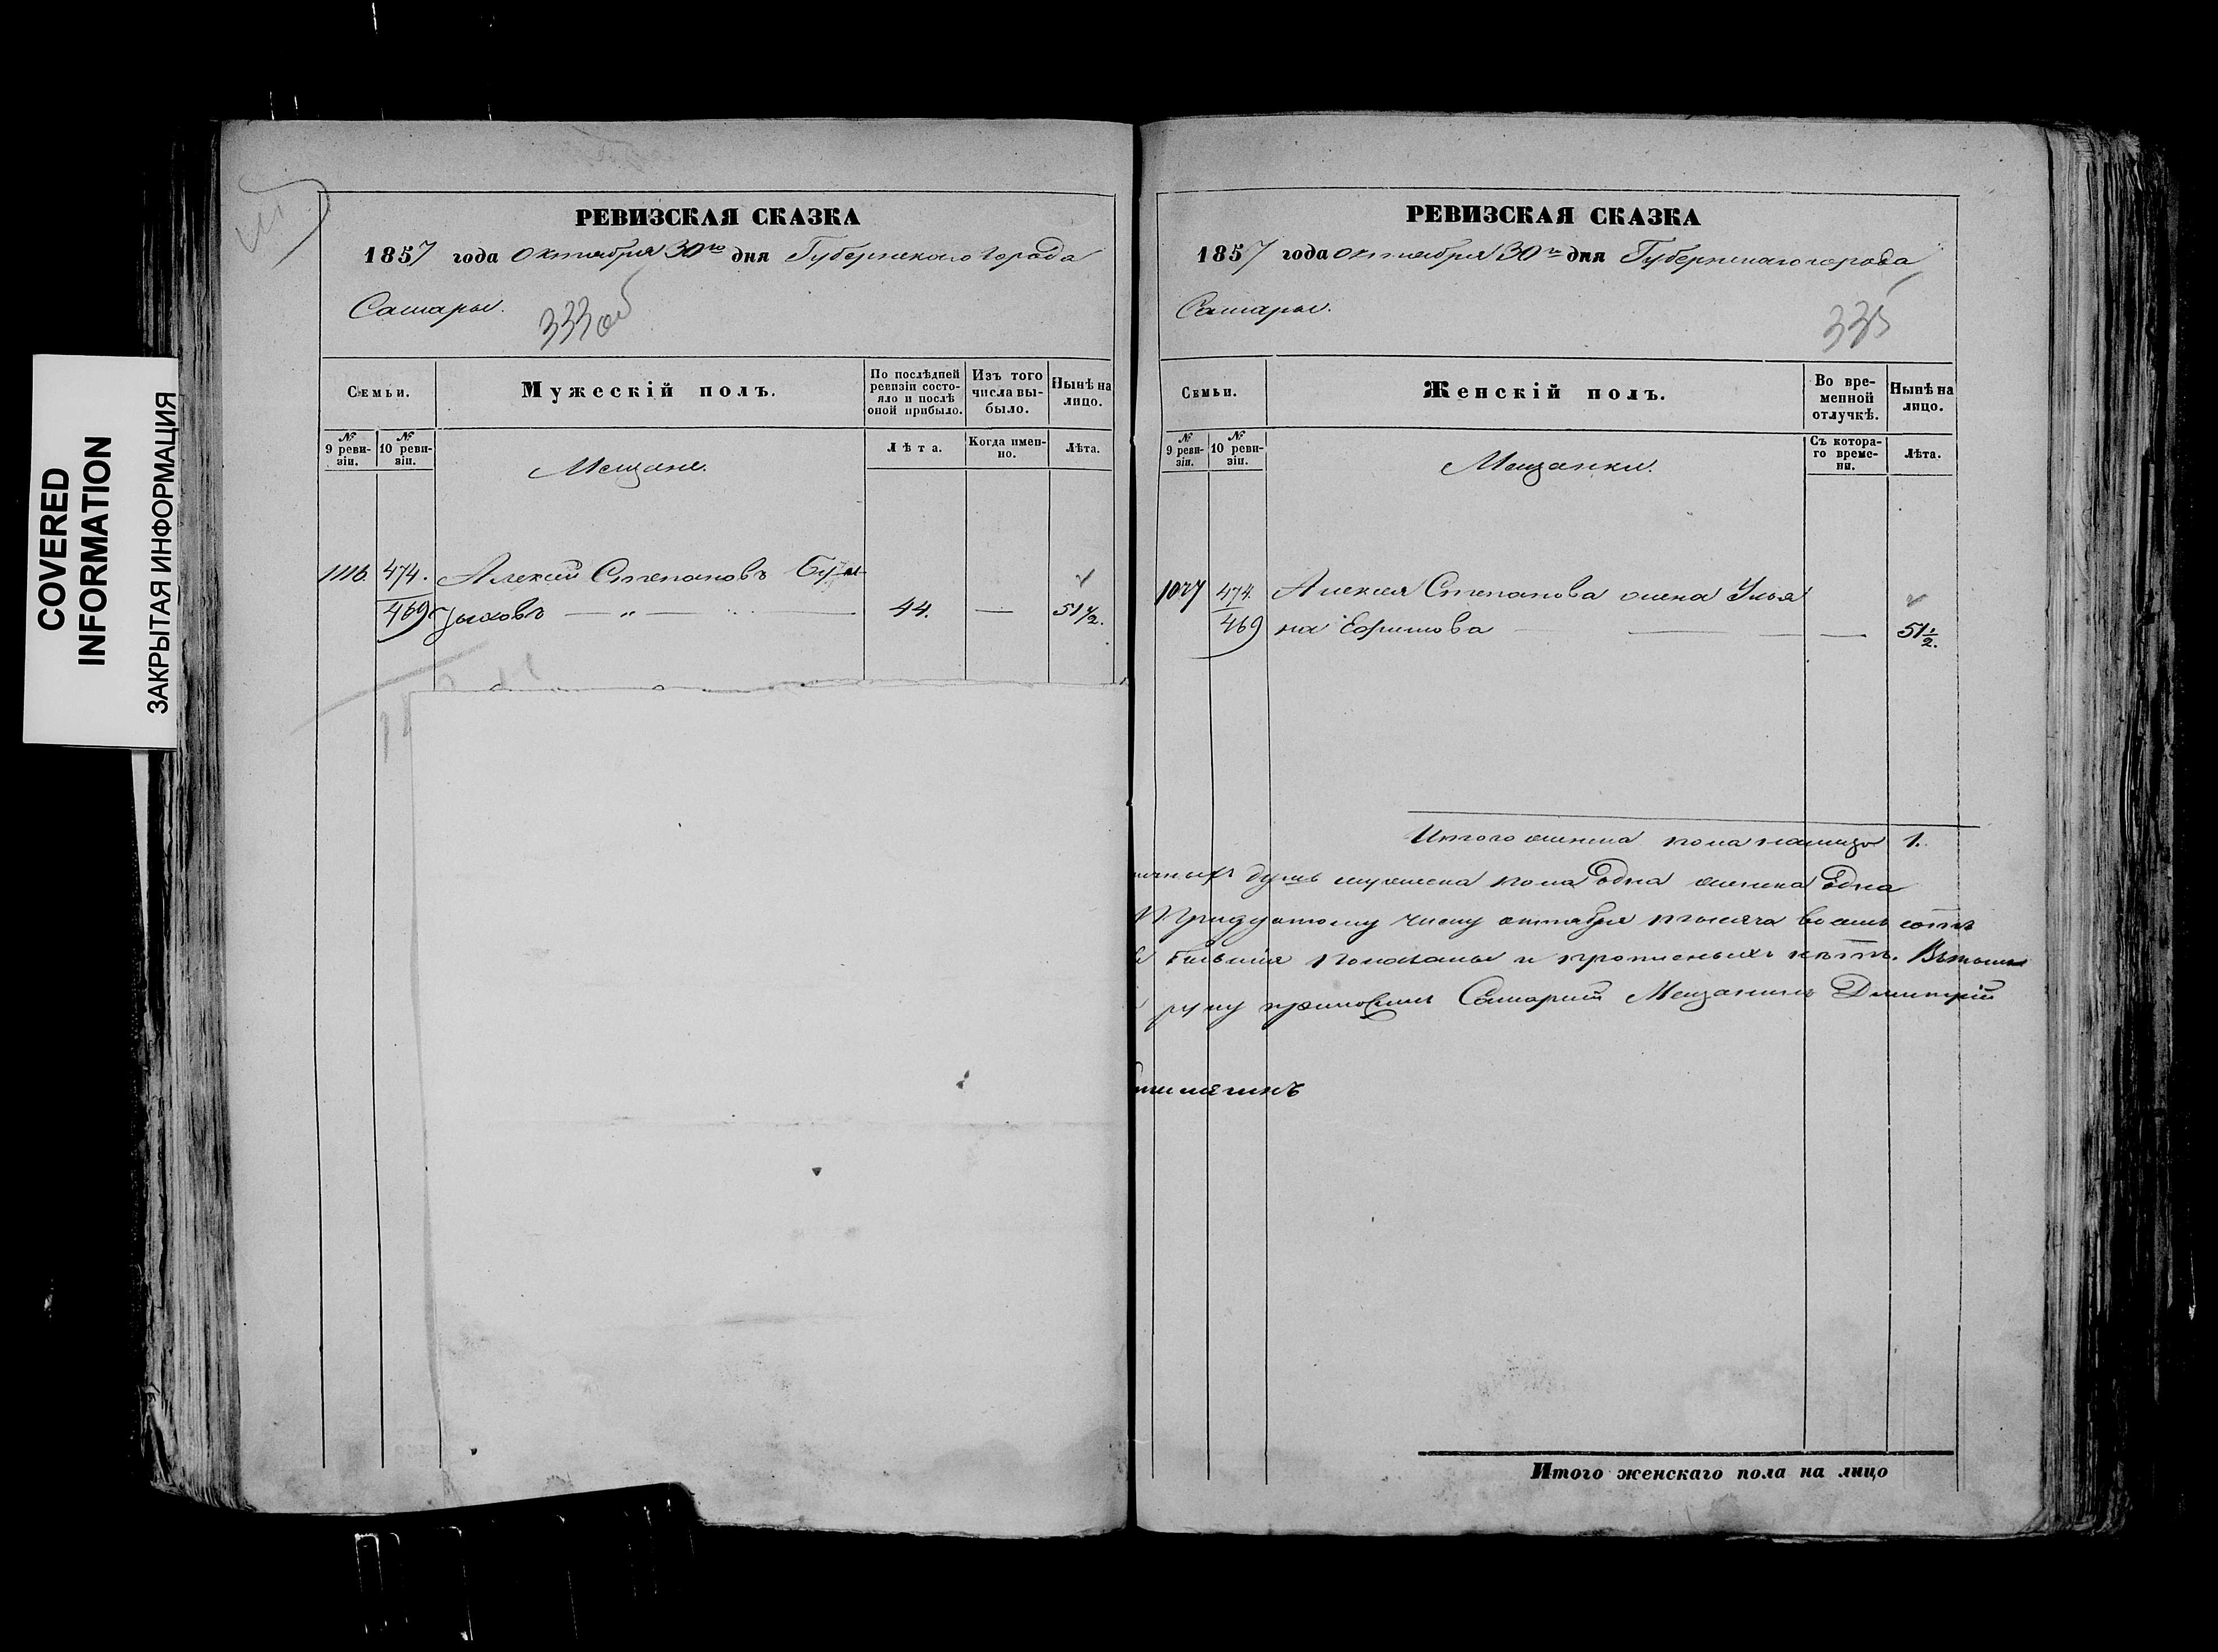 COVERED
INFORMATION
ЗАКРЫТАЯ ИНФОРМАЦИЯ
РЕВИЗСКАЯ СКАЗКА
1857 года Октября 30го дня Губернскаго города
Самары.
333об
Семьи.
Мужескій полъ.
По послѣдней ревизіи состояло и послѣ оной прибыло.
Изъ того числа выбыло.
Нынѣ на лицо.
№ 9 ревизіи.
№ 10 ревизіи.
Мещане.
Лѣта.
Когда именно.
Лѣта.
1116. 474. Алексей Степановъ
469 44. — 51½.
РЕВИЗСКАЯ СКАЗКА
1857 года Октября 30го дня Губернскаго города
Самары.
335
Семьи.
Женскій полъ.
Во временной отлучкѣ.
Нынѣ на лицо.
№ 9 ревизіи.
№ 10 ревизіи.
Мещанки.
Съ котораго времени.
Лѣта.
474. Алексея Степанова жена Улья
469 на Ефимова — 51½.
Итого женска пола налицо 1.
душъ мужеска пола Одна женска Одна
Тридцатому числу октября тысяча восемь сотъ
показаны и прописныхъ нѣтъ. Въ томъ
руку приложилъ Самарскій Мещанинъ Дмитрій
Итого женскаго пола на лицо